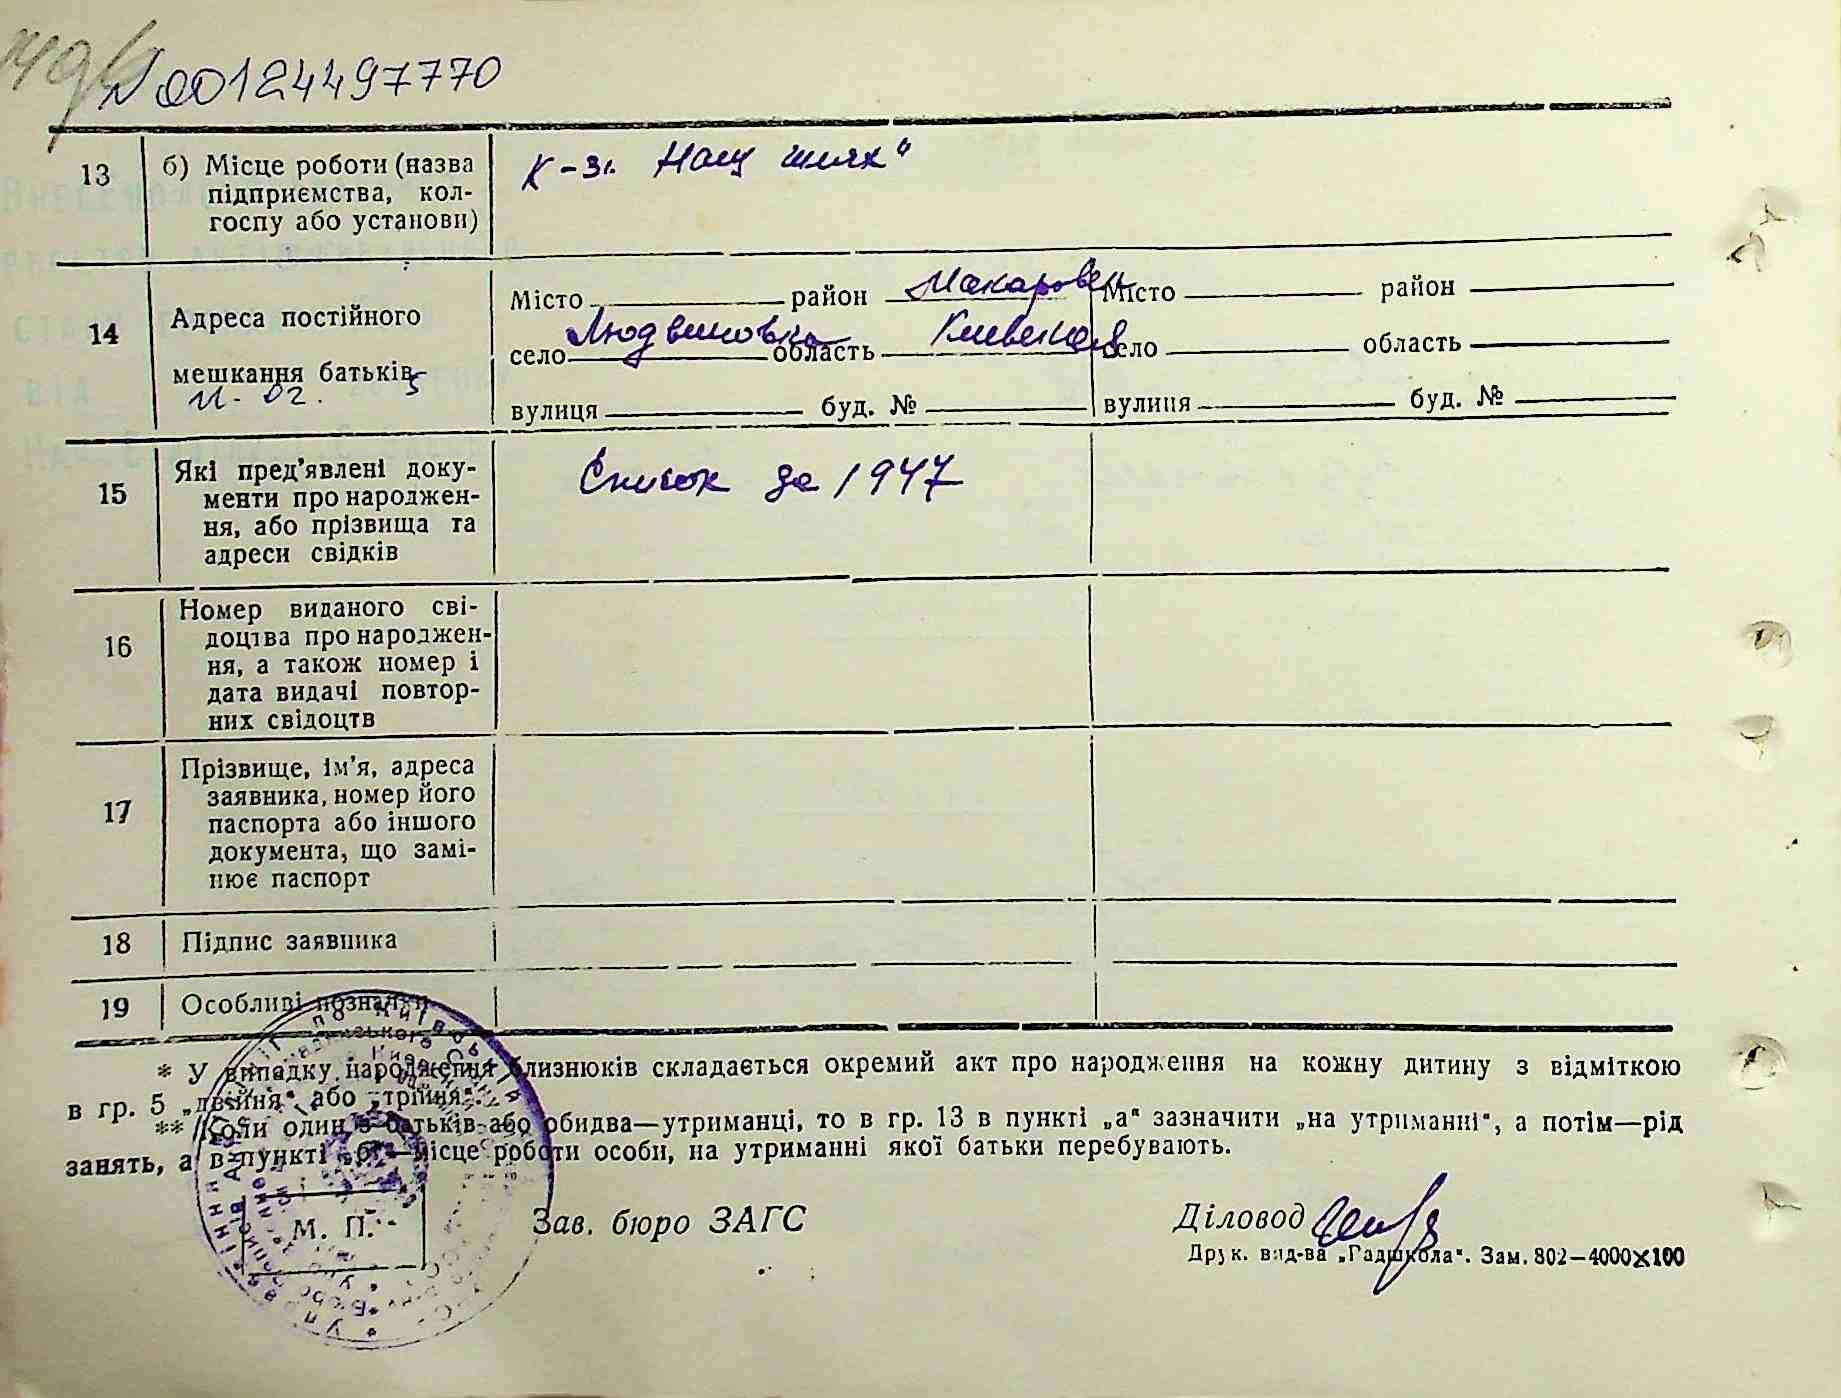 N 00124497770
13 б) Місце роботи (назва
підприємства, кол-
госпу або установи)
к-з. Наш шлях"
14 Адреса постійного
мешкання батьків
Місто район Макаровск Місто район
село Людвиновка область Киевская село область
вулиця буд. № вулиця буд. №
15 Які пред'явлені доку-
менти про народжен-
ня, або прізвища та
адреси свідків
Список за 1947
16 Номер виданого сві-
доцтва про народжен-
ня, а також номер і
дата видачі повтор-
них свідоцтв
17 Прізвище, ім'я, адреса
заявника, номер його
паспорта або іншого
документа, що замі-
нює паспорт
18 Підпис заявника
19 Особливі познадки
* У випадку народження близнюків складається окремий акт про народження на кожну дитину з відміткою
в гр. 5 „двійня" або „трійня".
** Коли один з батьків або обидва—утриманці, то в гр. 13 в пункті „а" зазначити „на утриманні", а потім—рід
занять, а в пункті „б"—місце роботи особи, на утриманні якої батьки перебувають.
М. П.
Зав. бюро ЗАГС
Діловод
Друк. вид-ва „Радшкола". Зам. 802—4000×100